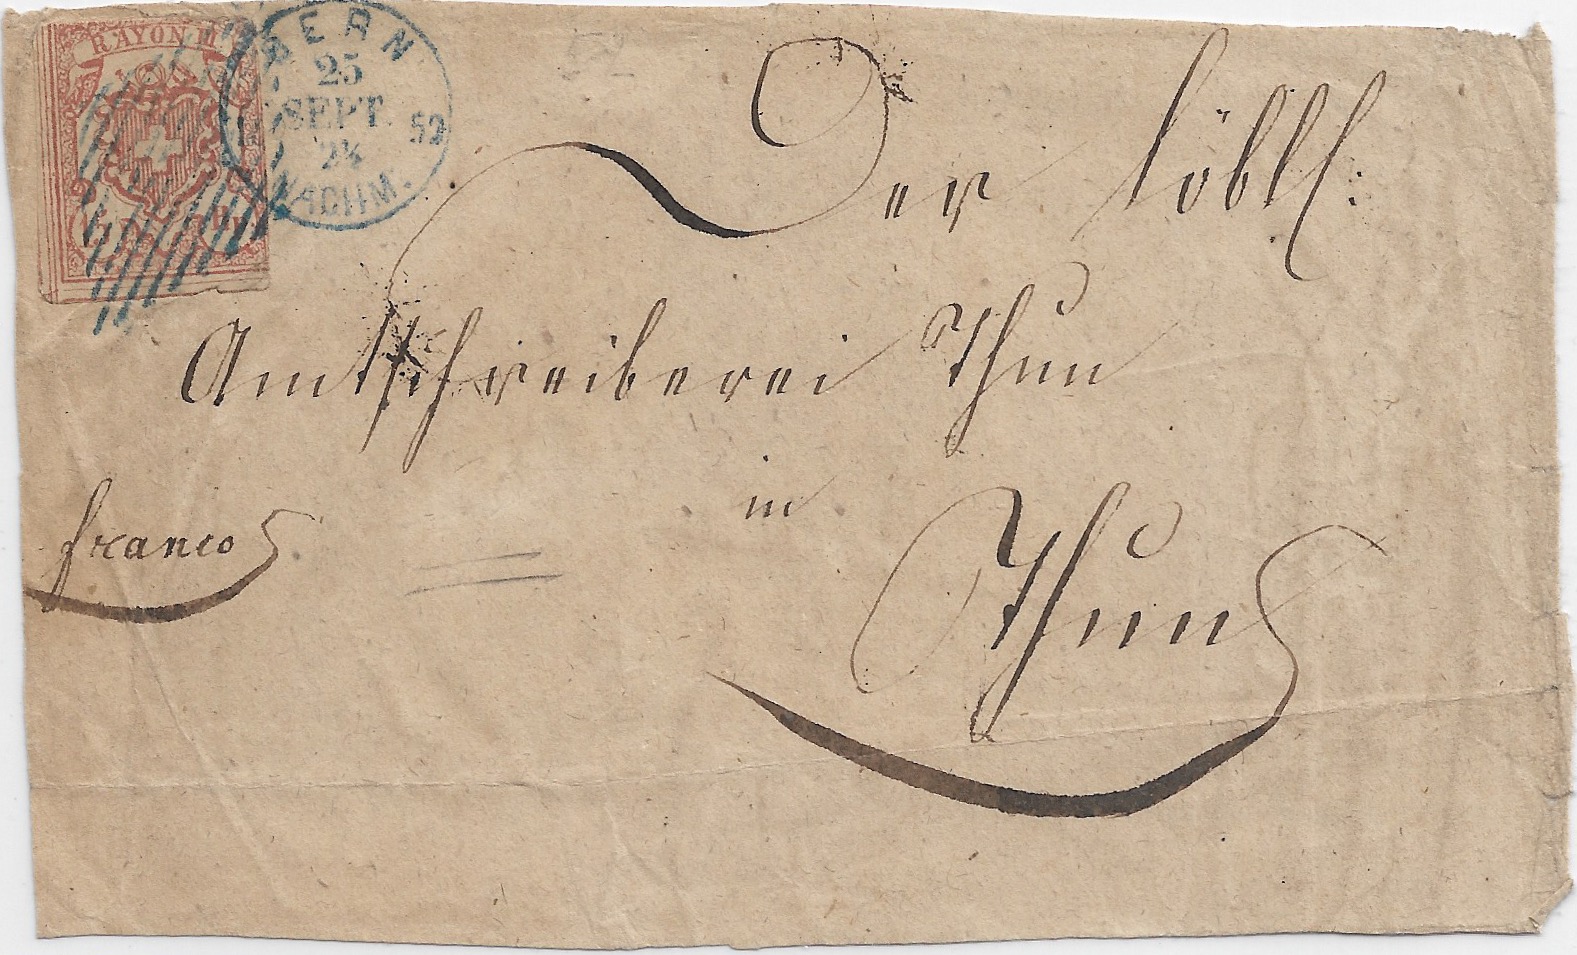 RAYON III
BERN
25
SEPT. 52
2¼
NACHM.
Der löbll.
Amtschreiberei Thun
in
franco
Thun